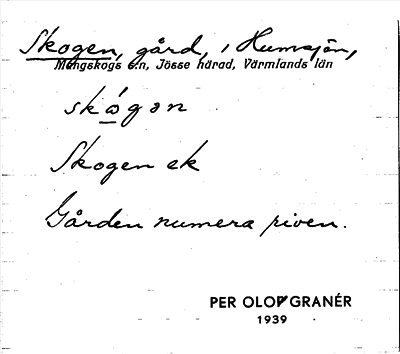 Skogen, gård, i Humsjön,
Mangskogs s:n, Jösse härad, Värmlands län
skǿgən
Skogen ek
Gården numera riven.
PER OLOF GRANÉR
1939